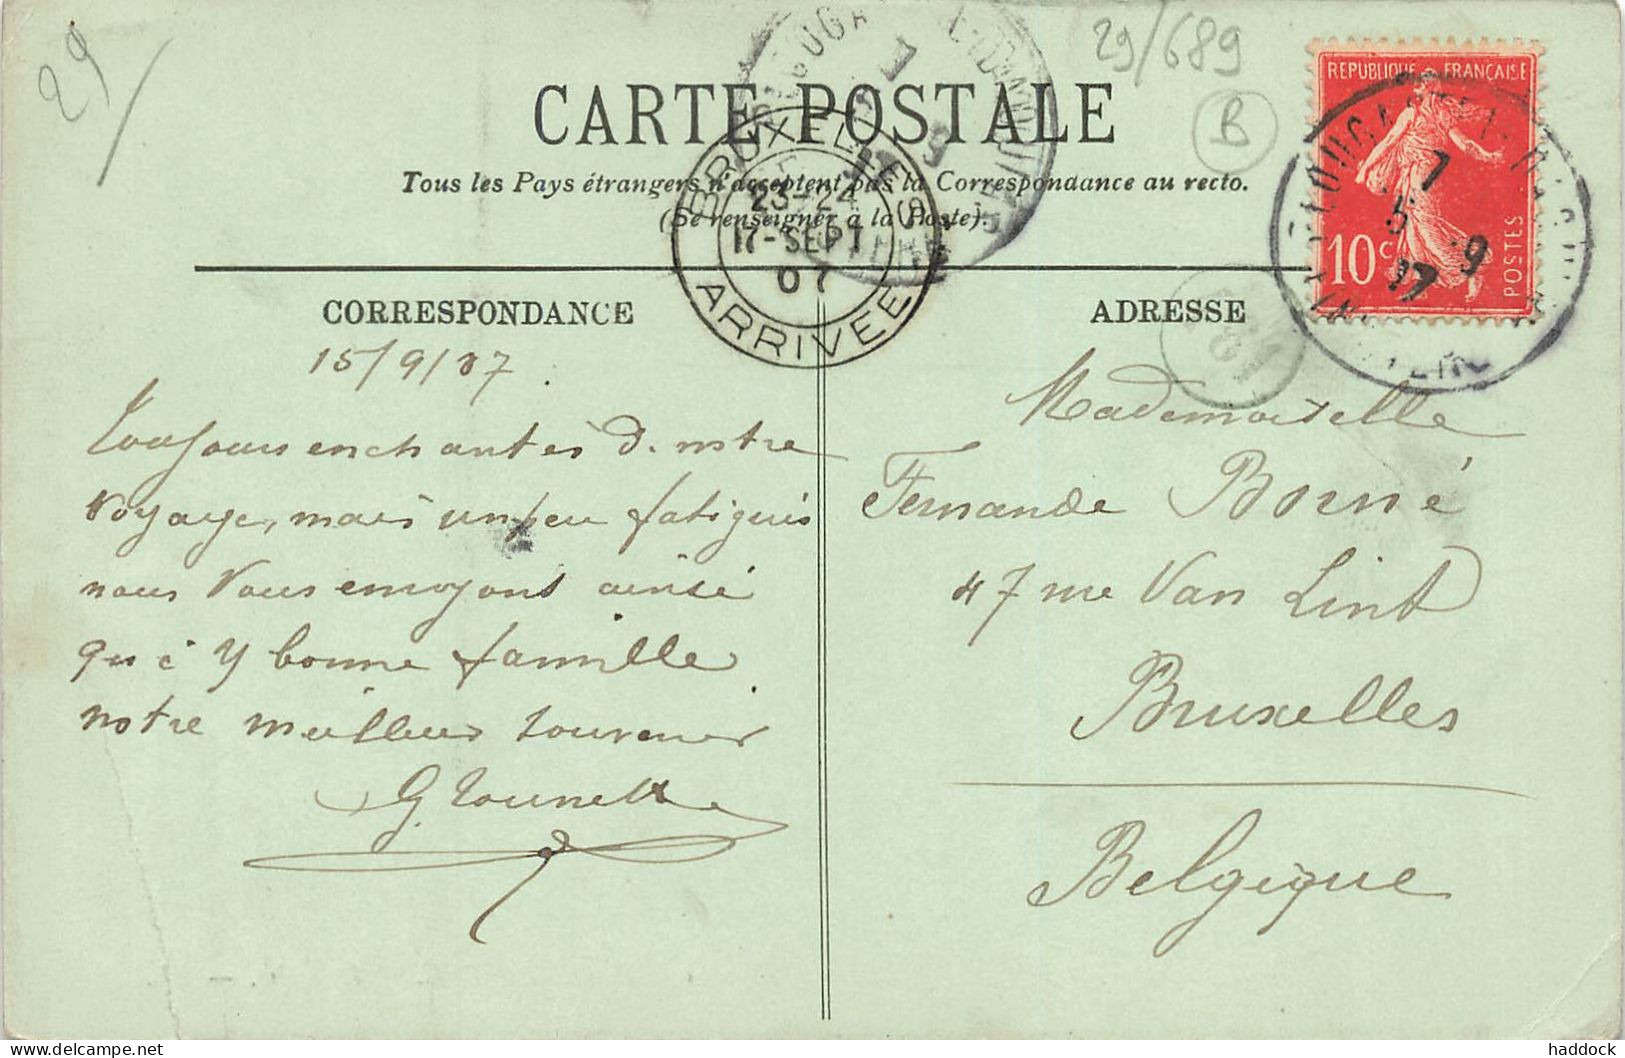 29/
29/689
B
CARTE POSTALE
Tous les Pays étrangers n'acceptent pas la Correspondaance au recto.
(Se renseigner à la Poste).
BRUXELLES
23-24
17-SEPT
07
ARRIVEE
REPUBLIQUE FRANÇAISE
10c
POSTES
CORRESPONDANCE
15/9/07.
Toujours enchantés d. notre
voyage, mais un peu fatigués
nous vous envoyons ainsi
qu'à y bonne famille
notre meilleur souvenir
ADRESSE
Mademoiselle
Fernande Borné
47 rue Van Lint
Bruxelles
Belgique
haddock